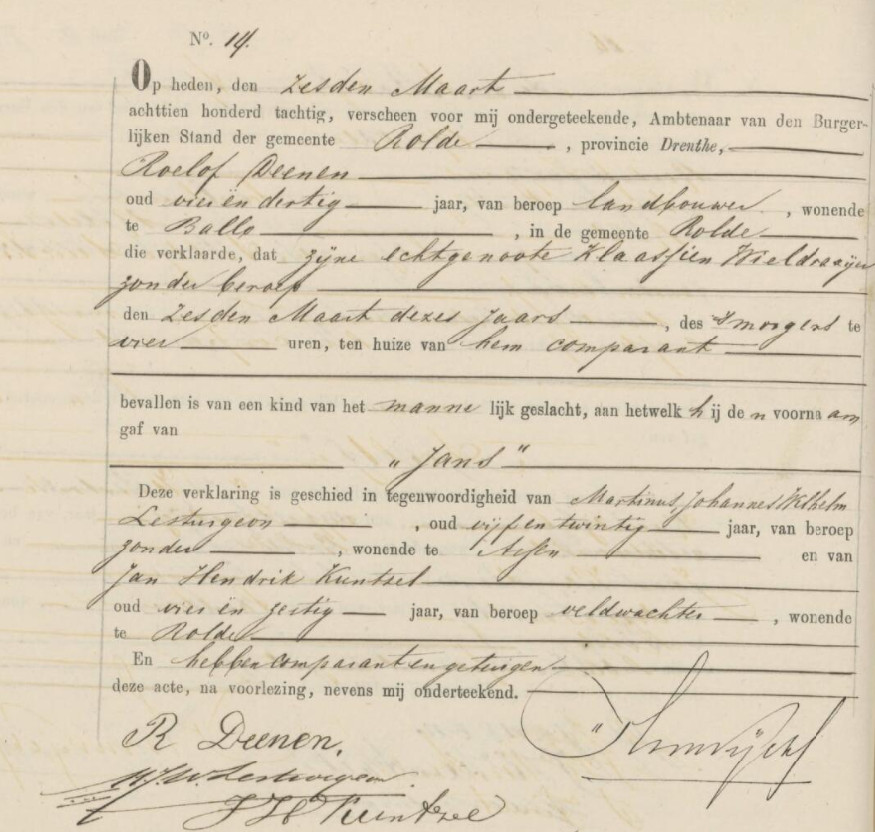 No. 14.
Op heden, den zesden Maart
achttien honderd tachtig, verscheen voor mij ondergeteekende, Ambtenaar van den Burger-
lijken Stand der gemeente Rolde, provincie Drenthe,
Roelof Deenen
oud vier ën dertig jaar, van beroep landbouwer, wonende
te Ballo, in de gemeente Rolde
die verklaarde, dat zijne echtgenoote Klaassien Wieldraaijer
zonder beroep
den zesden Maart dezes jaars, des 's morgens te
vier uren, ten huize van hem comparant
bevallen is van een kind van het mannelijk geslacht, aan hetwelk hij den voornaam
gaf van
„Jans"
Deze verklaring is geschied in tegenwoordigheid van Martinus, Johannes Wilhelm
Lesturgeon, oud vijf en twintig jaar, van beroep
zonder, wonende te Assen en van
Jan Hendrik Kuntzel
oud vier ën zestig jaar, van beroep veldwachter, wonende
te Rolde
En hebben comparant en getuigen
deze acte, na voorlezing, nevens mij onderteekend.
R Deenen.
M.J.W. Lesturgeon
J H Kuntzel